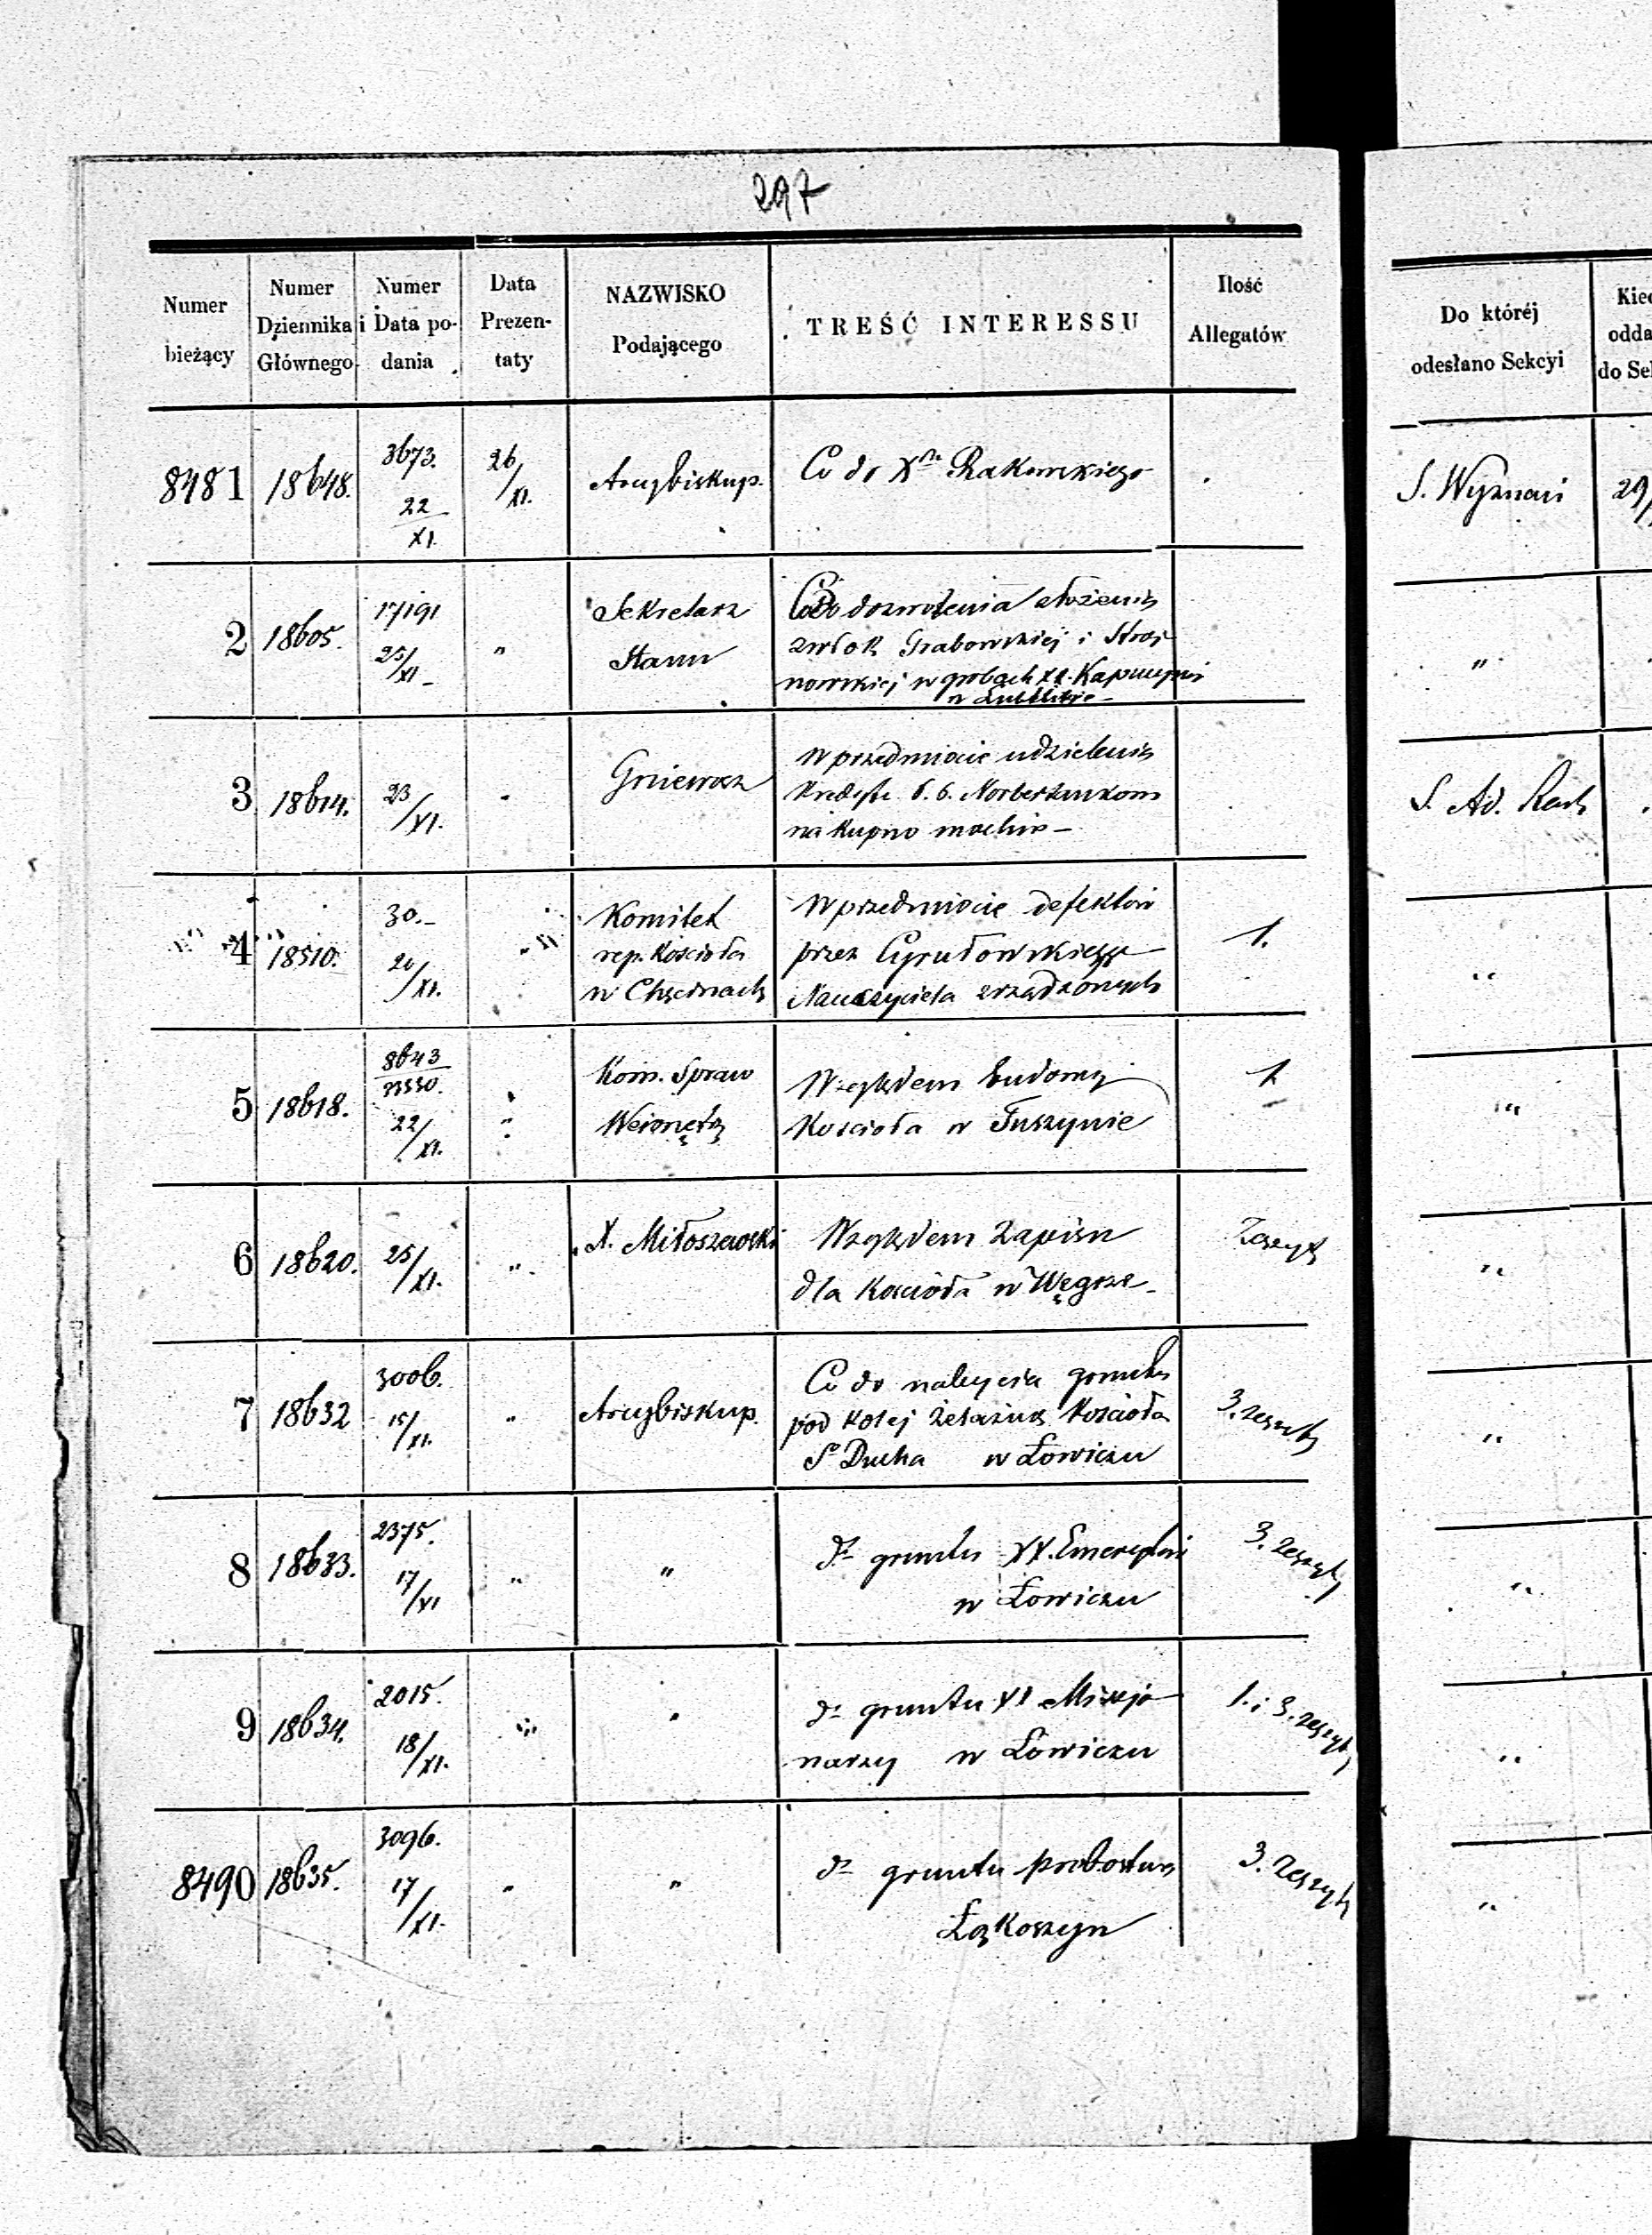 297
Numer bieżący
Numer Dziennika Głównego
Numer i Data podania
Data Prezentaty
NAZWISKO Podającego
TREŚĆ INTERESSU
Ilość Allegatów
Do któréj odesłano Sekcyi
8481 18648. 3673. 22/XI. 26/XI. Arcybiskup. Co do Xa Rakowskiego S. Wyznań 29/
2 18605. 17191 25/XI „ Sekretarz
Stanu
Co do dozwolenia złożenia
zwłok Grabowskiej i Stroj-
nowskiej w grobach XX. Kapucynów
w Lublinie „
3 18614. 23/XI. „ Gniewosz
W przedmiocie udzielenia
kredytu Norbertankom
na kupno machin S. Ad. Rach
4 18510. 30. 20/XI. „ Komitet
rep. Kościoła
w Chęcinach
W przedmiocie defektów
przez Cyrułowskiego
Nauczyciela zrządzonych 1. „
5 18618. 8643/23330. 22/XI. „ Kom. Spraw
Wewnętrz
Względem budowy
Kościoła w Tuszynie 1 „
6 18620. 25/XI. „ X. Miłoszewski
Względem zapisu
dla Kościoła w Węgrze Zeszyt „
7 18632 3006. 15/XI. „ Arcybiskup.
Co do nabycia gruntu
pod kolej żelazną Kościoła
S° Ducha w Łowiczu 3. zeszyty „
8 18633. 2375. 17/XI „ „
do gruntu XX. Emerytów
w Łowiczu 3. zeszyty „
9 18634. 2015. 18/XI. „ „
do gruntu XX Missjo-
narzy w Łowiczu 1. i 3. zeszyty „
8490 18635. 3096. 17/XI. „ „
do gruntu probostwa
Łąkoszyn 3. zeszyty „